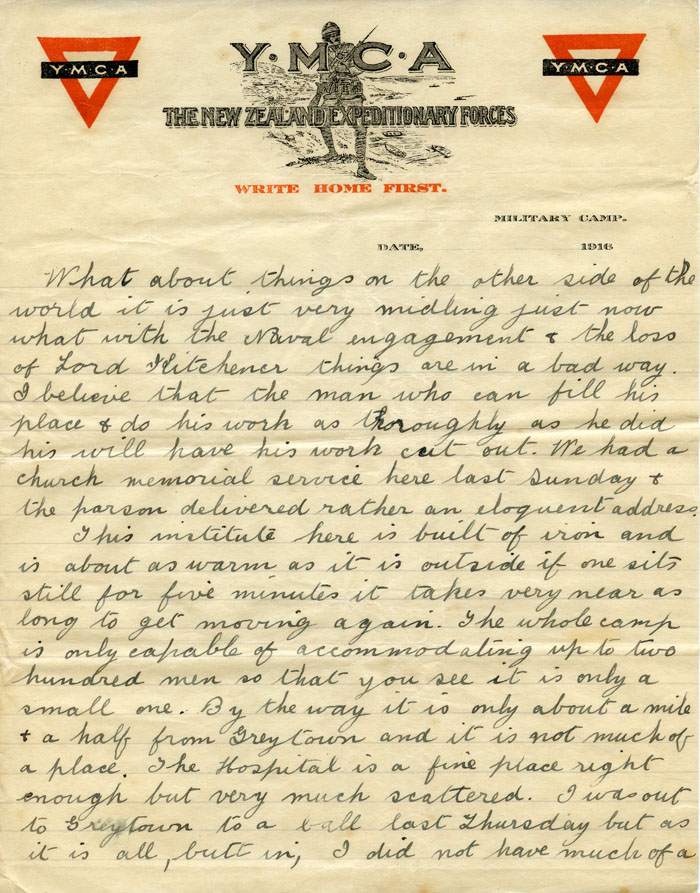 Y·M·C·A
Y·M·C·A
Y·M·C·A
THE NEW ZEALAND EXPEDITIONARY FORCES
WRITE HOME FIRST.
MILITARY CAMP.
DATE, 1916
What about things on the other side of the
world it is just very midling just now
what with the Naval engagement & the loss
of Lord Kitchener things are in a bad way.
I believe that the man who can fill his
place & do his work as thoroughly as he did
his will have his work cut out. We had a
church memorial service here last Sunday &
the parson delivered rather an eloquent address.
This institute here is built of iron and
is about as warm as it is outside if one sits
still for five minutes it takes very near as
long to get moving again. The whole camp
is only capable of accommodating up to two
hundred men so that you see it is only a
small one. By the way it is only about a mile
& a half from Greytown and it is not much of
a place. The Hospital is a fine place right
enough but very much scattered. I was out
to Greytown to a ball last Thursday but as
it is all, butt in, I did not have much of a